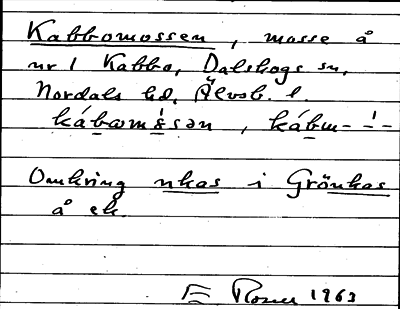 Kabbomossen, mosse å
nr 1 Kabbo, Dalskogs sn,
Nordals hd, Älvsb. l.
kábωmòssən, kábω- -̀ -
Omkring nkas i Grönkas
å ek.
E Rosell 1963